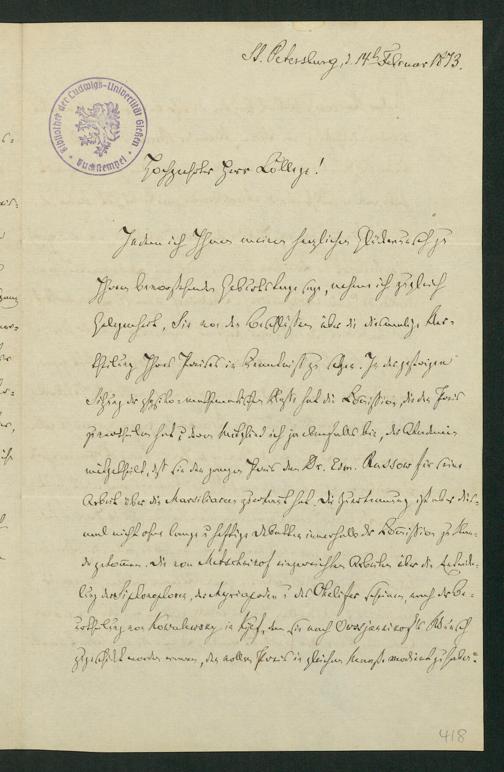 St. Petersburg, d. 14ten Februar 1873.
Bibliothek der Ludwigs-Universität Gießen
Buchstempel
Hochgeehrter Herr College!
Indem ich Ihnen meinen herzlichen Glückwunsch zu
Ihrem bevorstehenden Geburtstage sage, nehme ich zugleich
Gelegenheit, Sie von den Beschlüssen über die diesmalige Ver-
theilung Ihres Preises in Kenntniss zu setzen. In der gestrigen
Sitzung der physiko-mathematischen Klasse hat die Commission, die den Preis
zuzuertheilen hat u. deren Mitglied ich ja ebenfalls bin, der Akademie
mitgetheilt, daß sie den ganzen Preis dem Dr. Edm. Russow für seine
Arbeit über die Marsiliaceen zuerkannt hat. Die Zuerkennung ist aber dies-
mal nicht ohne lange u. heftige Debatten innerhalb der Commission zu Stan-
de gekommen. Die von Metschnikof eingereichten Arbeiten über die Entwick-
lung der Siphonophoren, der Myriapoden u. des Chelifer schienen, nach der Be-
urtheilung von Kowalewsky in Kijef, dem sie nach Owsjannikof's Wunsch
zugeschickt worden waren, den vollen Preis in gleichem Maaße verdient zu haben.
418